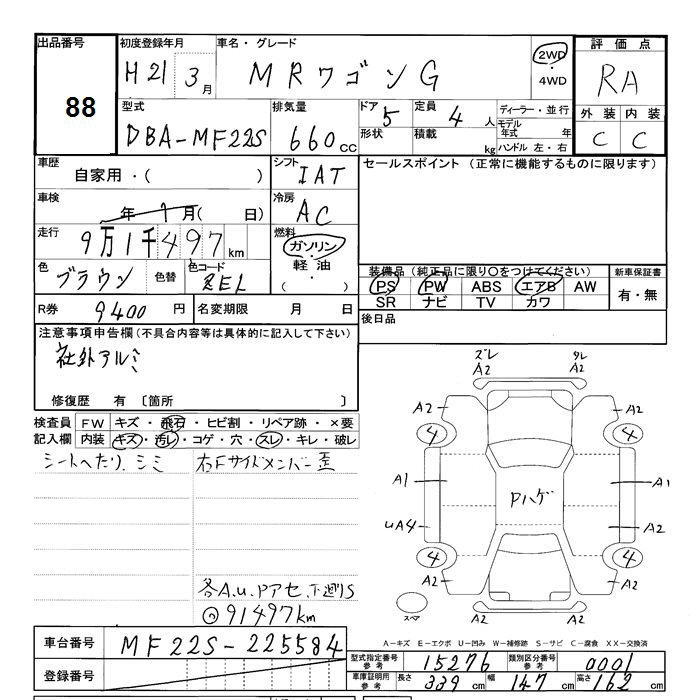 出品番号 初度登録年月 車名・グレード 評価点
88 H21 3月 MRワゴン G 2WD・4WD RA
型式 排気量 ドア 5 定員 4人 ディーラー・並行 外装 内装
DBA-MF22S 660cc 形状 積載 kg モデル年式 年 C C
ハンドル 左・右
車歴 シフト セールスポイント (正常に機能するものに限ります)
自家用・( ) IAT
車検 冷房
年 1月( 日) AC
走行 燃料
9万1千497km ガソリン・軽油・( )
色 色替 色コード 装備品 (純正品に限り○をつけてください) 新車保証書
ブラウン ZEL PS PW ABS エアB AW 有・無
SR ナビ TV カワ
R券 9400円 名変期限 月 日 後日品
注意事項申告欄 (不具合内容等は具体的に記入して下さい)
社外アルミ
修復歴 有 〔箇所 〕
検査員 FW キズ・飛石・ヒビ割・リペア跡・×要
記入欄 内装 キズ・汚レ・コゲ・穴・スレ・キレ・破レ
シートヘたり、シミ 右Fサイドメンバー歪
各A.u.Pアセ、下廻りS
◎91497km
ズレ ズレ
A2 A2
A2 A2
4 4
A1 A1
Pハゲ
uA4 A2
4 4
A2 A2
A2 A2
スペア
A-キズ E-エクボ U-凹み W-補修跡 S-サビ C-腐食 XX-交換済
車台番号 MF22S-225584
登録番号
型式指定番号 参考 15276 類別区分番号 参考 0001
車庫証明用 参考 長さ 339cm 幅 147cm 高さ 162cm